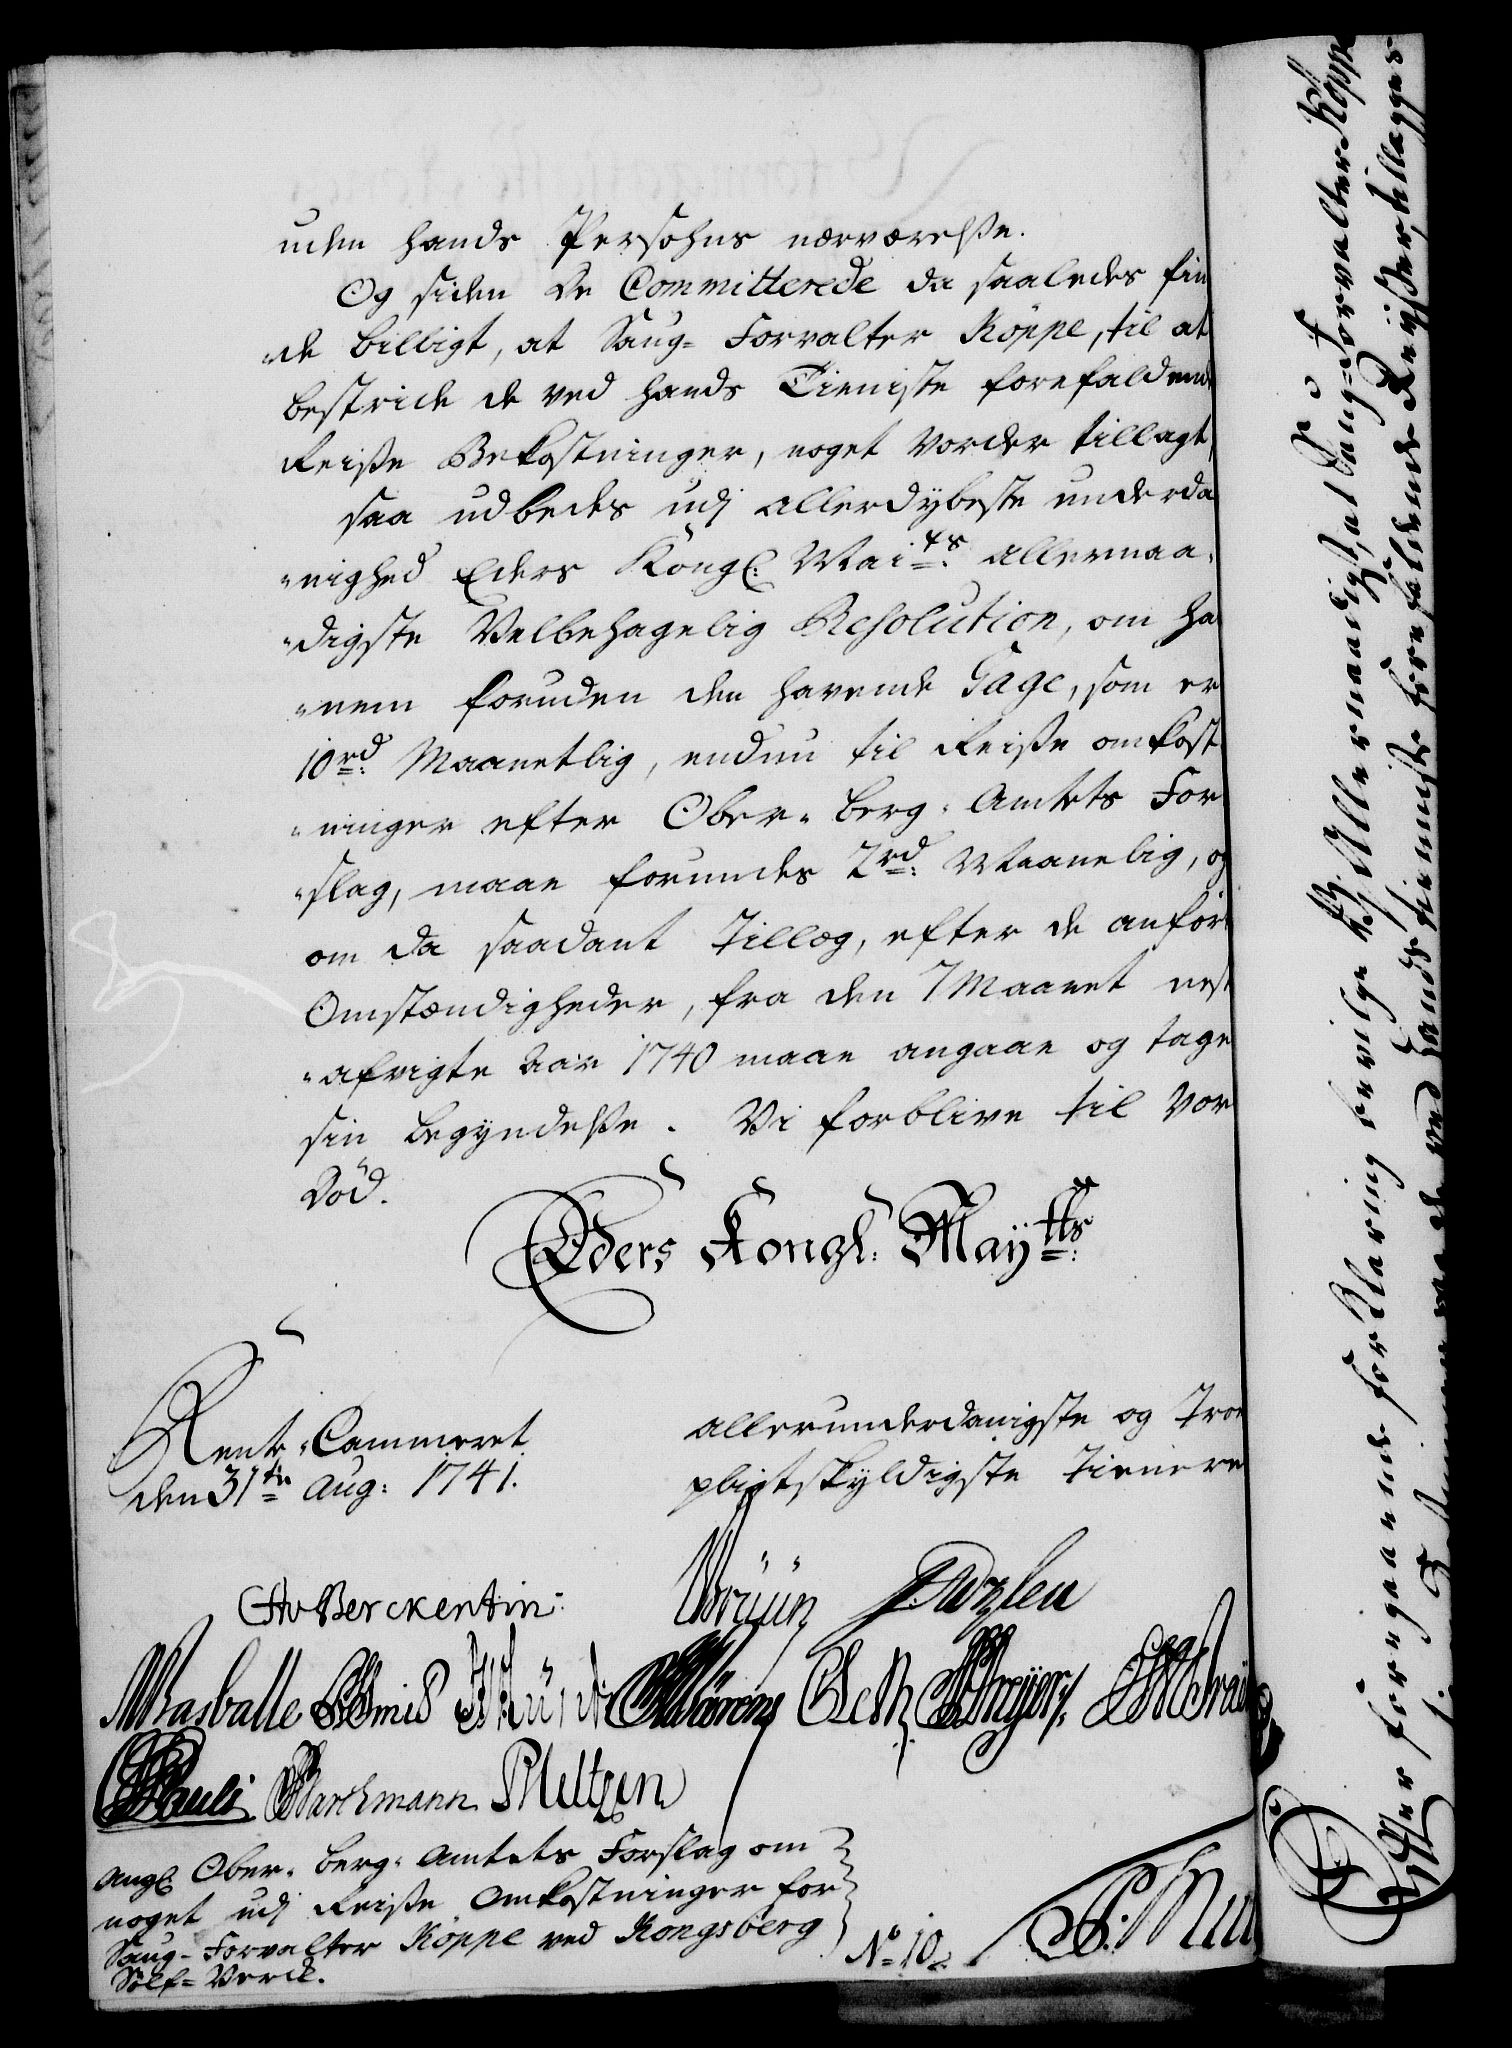 uden hands Persohns nærværelße.
Og siden De Committerede da saaledes fin
-de billigt, at Saug- Forvalter Köppe, til at
bestride de ved hands Tieniste forefaldend
Reiße Bekostninger, noget vorder tillagt,
saa udbedes udj allerdybeste underda
-nighed Eders Kongl: Maits: allernaa-
-digste Velbehagelig Resolution, om ha
-nem foruden den havende Gage, som er
10 rd: Maanetlig, endnu til Reiße omkost
-ninger efter Ober- berg- Amtets For
-slag, maae forundes 2 rd: Maanetlig, og
om da saadant Tillæg, efter de anför
Omstændigheder, fra den 7 Maanet nest
-afvigte Aar 1740 maae angaae og tage
sin begyndelße. Vi forblive til vor
Död.
Eders Kongl: Maytts:
Rente-Cammeret
den 31te Aug: 1741.
allerunderdanigste og Troe
pligtskyldigste Tienere
CAvBerckentin:
Brüün
Rasballe
Pauli Barchmann PHeltzen
Angl: Ober- berg- Amtets Forslag om
noget udj Reiße Omkostninger for
Saug- Forvalter Köppe ved Kongsberg
Sölf- Verck.
No 10.
Efter foregaaende forklaring bevilge Vj Allernaadigst, at Saug-Forvalter Köppe
til at bestride de ved hands tienniste forefaldende Reÿßer, tillegges